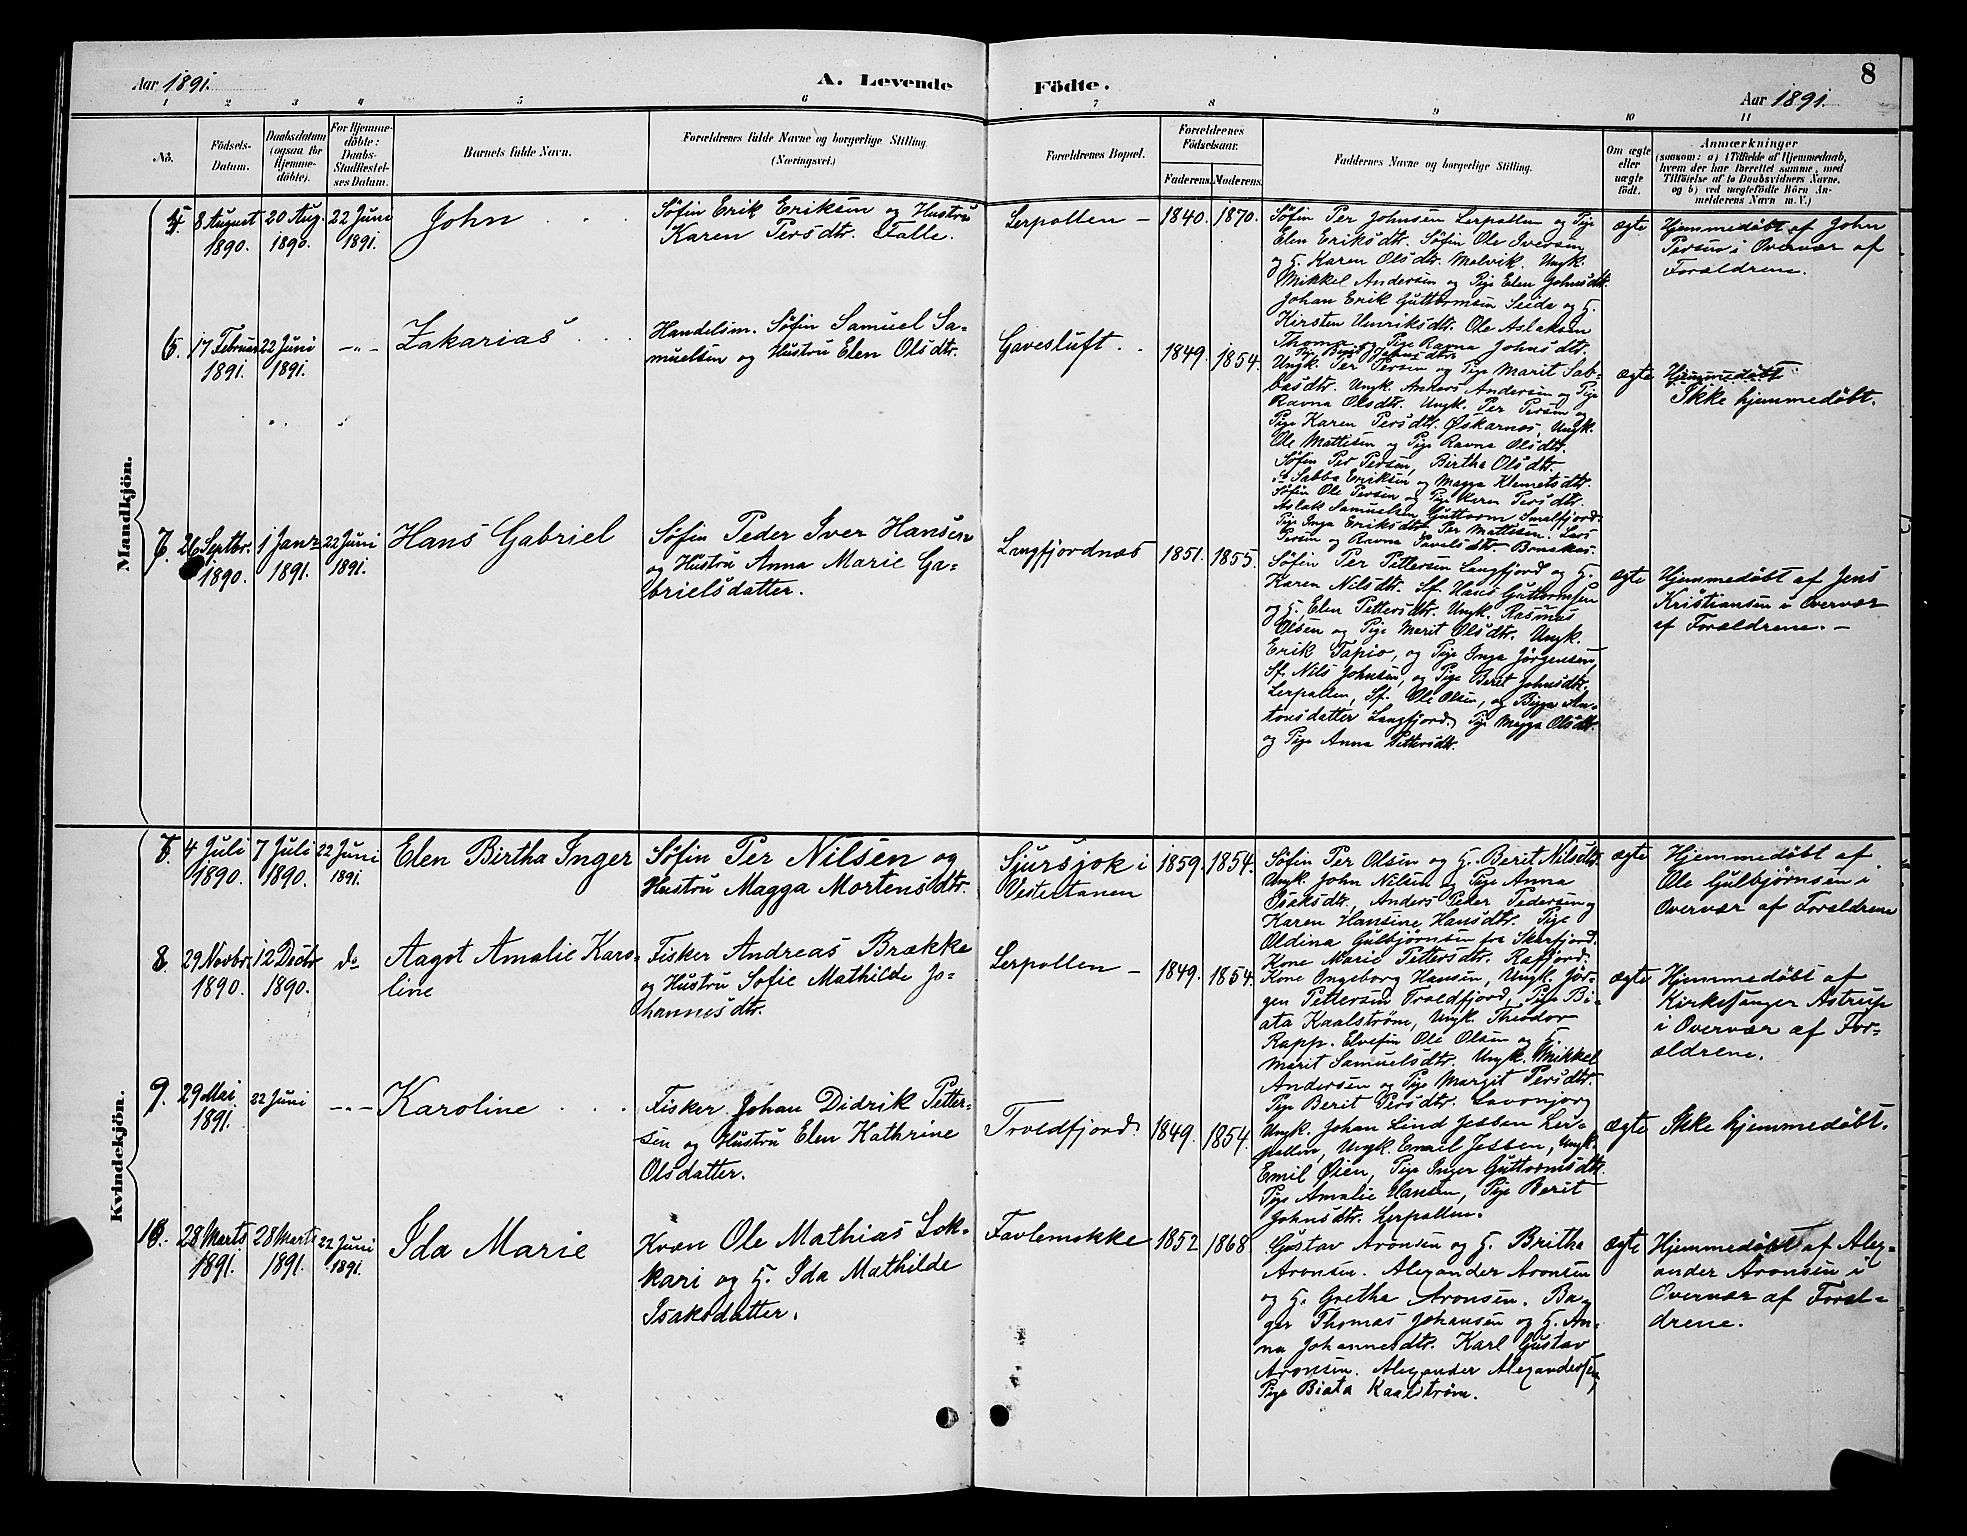 Aar 1891.
A. Levende
Födte.
8
Aar 1891.
1
2
3
4
5
6
7
8
9
10
11
No.
Födsels-
Datum.
Daabsdatum
(ogsaa for
Hjemme-
döbte).
For Hjemme-
döbte:
Daabs-
Stadfæstel-
ses Datum.
Barnets fulde Navn.
Forældrenes fulde Navne og borgerlige Stilling
(Næringsvei.)
Forældrenes Bopæl.
Forældrenes
Födselsaar.
Faderens. Moderens.
Faddernes Navne og borgerlige Stilling.
Om ægte
eller
uægte
födt.
Anmærkninger
(saasom: a) i Tilfælde af Hjemmedaab,
hvem der har forrettet samme, med
Tilföielse af to Daabsvidners Navne,
og b) ved uægtefödte Börn An-
melderens Navn m. V.)
Mandkjön.
5. 8 August
1890.
20 Aug.
1890.
22 Juni
1891.
John
Søfin Erik Eriksen og Hustru
Karen Persdtr. Falle.
Lerpollen –
1840. 1870.
Søfin Per Johnsen Lerpollen og Pige
Elen Eriksdtr. Søfin Ole Iversen
og H. Karen Olsdtr. Malvik. Ungk.
Mikkel Andersen og Pige Elen Johnsdtr.
ægte
Hjemmedøbt af John
Persen i Overvær af
Forældrene.
6. 17 Februar
1891.
22 Juni
1891.
–"–
Zakarias
Handelsm. Søfin Samuel Sa-
muelsen og Hustru Elen Olsdtr.
Gavesluft.
1849. 1854.
Johan Erik Guttormsen Seida og H.
Kirsten Henriksdtr. Ole Aslaksen
Thomas og Pige Ravna Johnsdtr.
Ungk. Per Persen og Pige Marit Sab-
basdtr. Ungk. Anders Andersen og Pige
Ravna Olsdtr. Ungk. Per Persen og
Pige Karen Persdtr. Øskarnæs, Ungk.
Ole Mattisen og Pige Ravna Olsdtr.
Søfin Per Persen, Birtha Olsdtr.
Sabba Eriksen og Magga Klemetsdtr.
Søfin Ole Persen og Pige Karen Persdtr.
Aslak Samuelsen Guttorm Smalfjord.
Pige Inga Eriksdtr. Per Mattisen. Lars
Persen og Ravna Pavelsdtr. Bonakas.
ægte
Hjemmedøbt
Ikke hjemmedøbt.
7. 26 Septbr.
1890.
1 Janr
1891.
22 Juni
1891.
Hans Gabriel
Søfin Peder Iver Hansen
og Hustru Anna Marie Ga-
brielsdatter.
Langfjordnæs
1851. 1855.
Søfin Per Pettersen Langfjord og H.
Karen Nilsdtr. Sf. Hans Guttormsen
og H. Elen Pettersdtr. Ungk. Rasmus
Olsen og Pige Marit Olsdtr. Ungk.
Erik Tapio, og Pige Inga Jørgensen,
Sf. Nils Johnsen, og Pige Berit Johnsdtr.
Lerpollen, Sf. Ole Olsen, og Bigga An-
tonsdatter Langfjord. Pige Magga Olsdtr.
og Pige Anna Pettersdtr.
ægte
Hjemmedøbt af Jens
Kristiansen i Overvær
af Forældrene. –
Kvindekjön.
7. 4 Juli
1890.
7 Juli
1890.
22 Juni
1891.
Elen Birtha Inger
Søfin Per Nilsen og
Hustru Magga Mortensdtr.
Sjursjok i
Vestertanen
1859. 1854.
Søfin Per Olsen og H. Berit Nilsdtr.
Ungk. John Nilsen og Pige Anna
Isaksdtr., Anders Peter Pedersen og
Karen Hansine Hansdtr. Pige
Oldina Gulbjørnsen fra Skarfjord.
ægte
Hjemmedøbt af
Ole Gulbjørnsen i
Overvær af Forældrene
8. 29 Novbr.
1890.
12 Decbr
1890.
do
Aagot Amalie Karo-
line
Fisker Andreas Brække
og Hustru Sofie Mathilde Jo-
hannesdtr.
Lerpollen –
1849. 1854.
Kone Marie Pettersdtr. Rafjord.
Kone Ingeborg Hansen, Ungk. Jør-
gen Pettersen Troldfjord, Pige Bi-
ata Kaalstrøm, Ungk. Theodor
Rapp. Elvefin Ole Olsen og H.
Marit Samuelsdtr. Ungk. Mikkel
Andersen og Pige Margit Persdtr.
Pige Berit Persdtr. Lavonjorg
ægte
Hjemmedøbt af
Kirkesanger Astrup
i Overvær af For-
ældrene.
9. 29 Mai
1891.
22 Juni
–"–
Karoline
Fisker Johan Didrik Petter-
sen og Hustru Elen Kathrine
Olsdatter.
Troldfjord.
1849. 1854
Ungk. Johan Lind Jessen Ler-
pollen, Ungk. Emil Jessen, Ungk.
Emil Øien, Pige Inger Guttormsdtr.
Pige Amalie Hansen, Pige Berit
Johnsdtr. Lerpollen.
ægte
Ikke hjemmedøbt.
10. 28 Marts
1891.
28 Marts
1891.
22 Juni
1891.
Ida Marie
Kvæn Ole Mathias Lok-
kari og H. Ida Mathilde
Isaksdatter.
Favlemokke
1852 1868
Gustav Aronsen og H. Britha
Aronsen. Alexander Aronsen
og H. Gretha Aronsen. Ba-
ger Thomas Johansen og H. An-
na Johannesdtr. Karl Gustav
Aronsen. Alexander Alexandersen,
Pige Biata Kaalstrøm.
ægte
Hjemmedøbt af Alex-
ander Aronsen i
Overvær af Foræl-
drene.